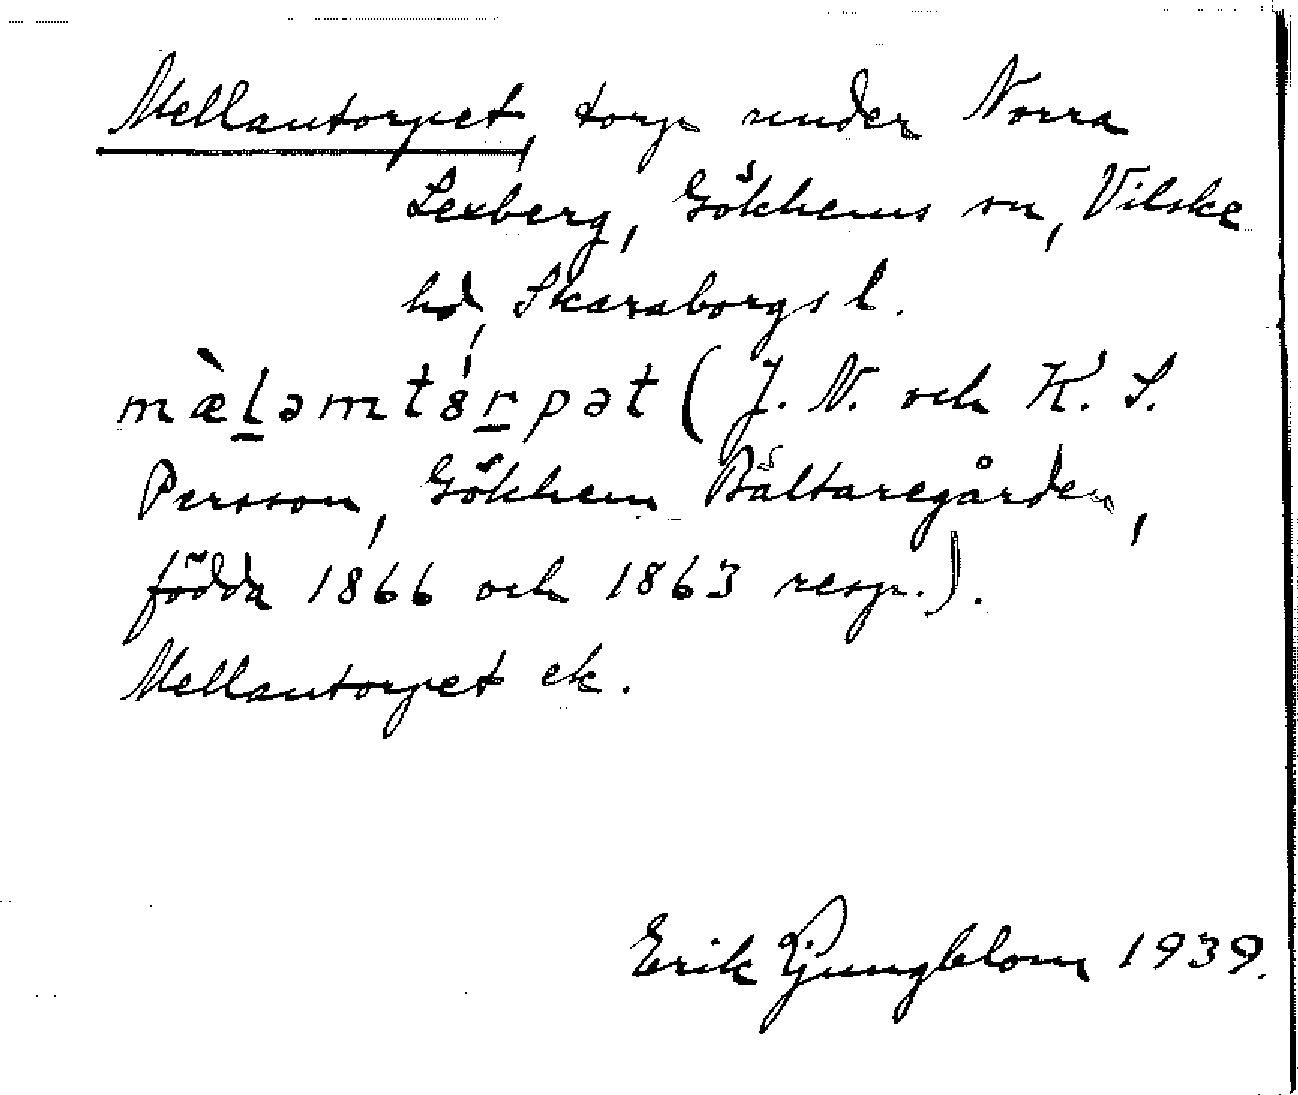 Mellantorpet, torp under Norra
Lexberg, Gökhems sn, Vilske
hd, Skaraborgs l.
mæ̀l̠əmtȣ́r̠pət (J. N. och K. S.
Persson, Gökhem Bältaregården,
födda 1866 och 1863 resp.).
Mellantorpet ek.
Erik Ljungblom 1939.